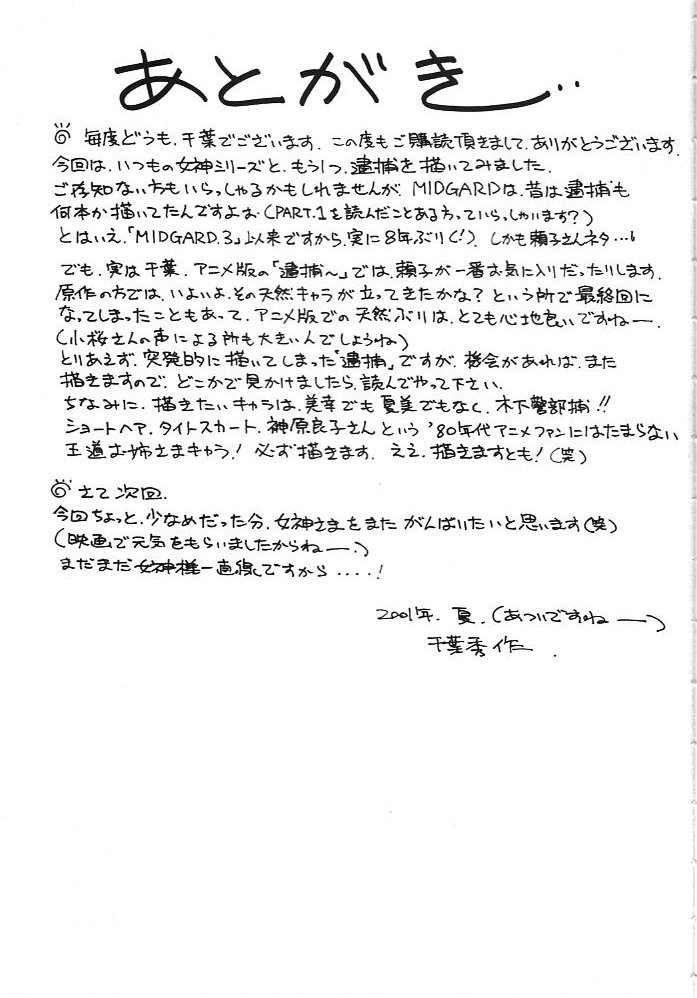 あとがき..
◎ 毎度どうも、千葉でございます。この度もご購読頂きまして、ありがとうございます。
今回は、いつもの女神シリーズと、もう1つ、逮捕を描いてみました。
ご存知ない方もいらっしゃるかもしれませんが、MIDGARDは、昔は逮捕も
何本か描いてたんですよね（PART.1を読んだことある方っていらっしゃいます？）
とはいえ、「MIDGARD.3」以来ですから、実に8年ぶり（！）、しかも頼子さんネタ…
でも、実は千葉、アニメ版の「逮捕〜」では、頼子が一番お気に入りだったりします。
原作の方では、いよいよ、その天然キャラが立ってきたかな？という所で最終回に
なってしまったこともあって、アニメ版での天然ぶりは、とても心地良いですねー。
（小桜さんの声による所も大きいんでしょうね）
とりあえず、突発的に描いてしまった「逮捕」ですが、機会があれば、また
描きますので、どこかで見かけましたら、読んでやって下さい。
ちなみに、描きたいキャラは、美幸でも夏美でもなく、木下警部補!!
ショートヘア、タイトスカート、神原良子さんという'80年代アニメファンにはたまらない
王道お姉さまキャラ！必ず描きます。ええ、描きますとも！（笑）
◎ さて次回、
今回ちょっと、少なめだった分、女神さまをまたがんばりたいと思います（笑）
（映画で元気をもらいましたからねー。）
まだまだ女神様一直線ですから....!
2001年.夏.（あついですねー）
千葉秀作.